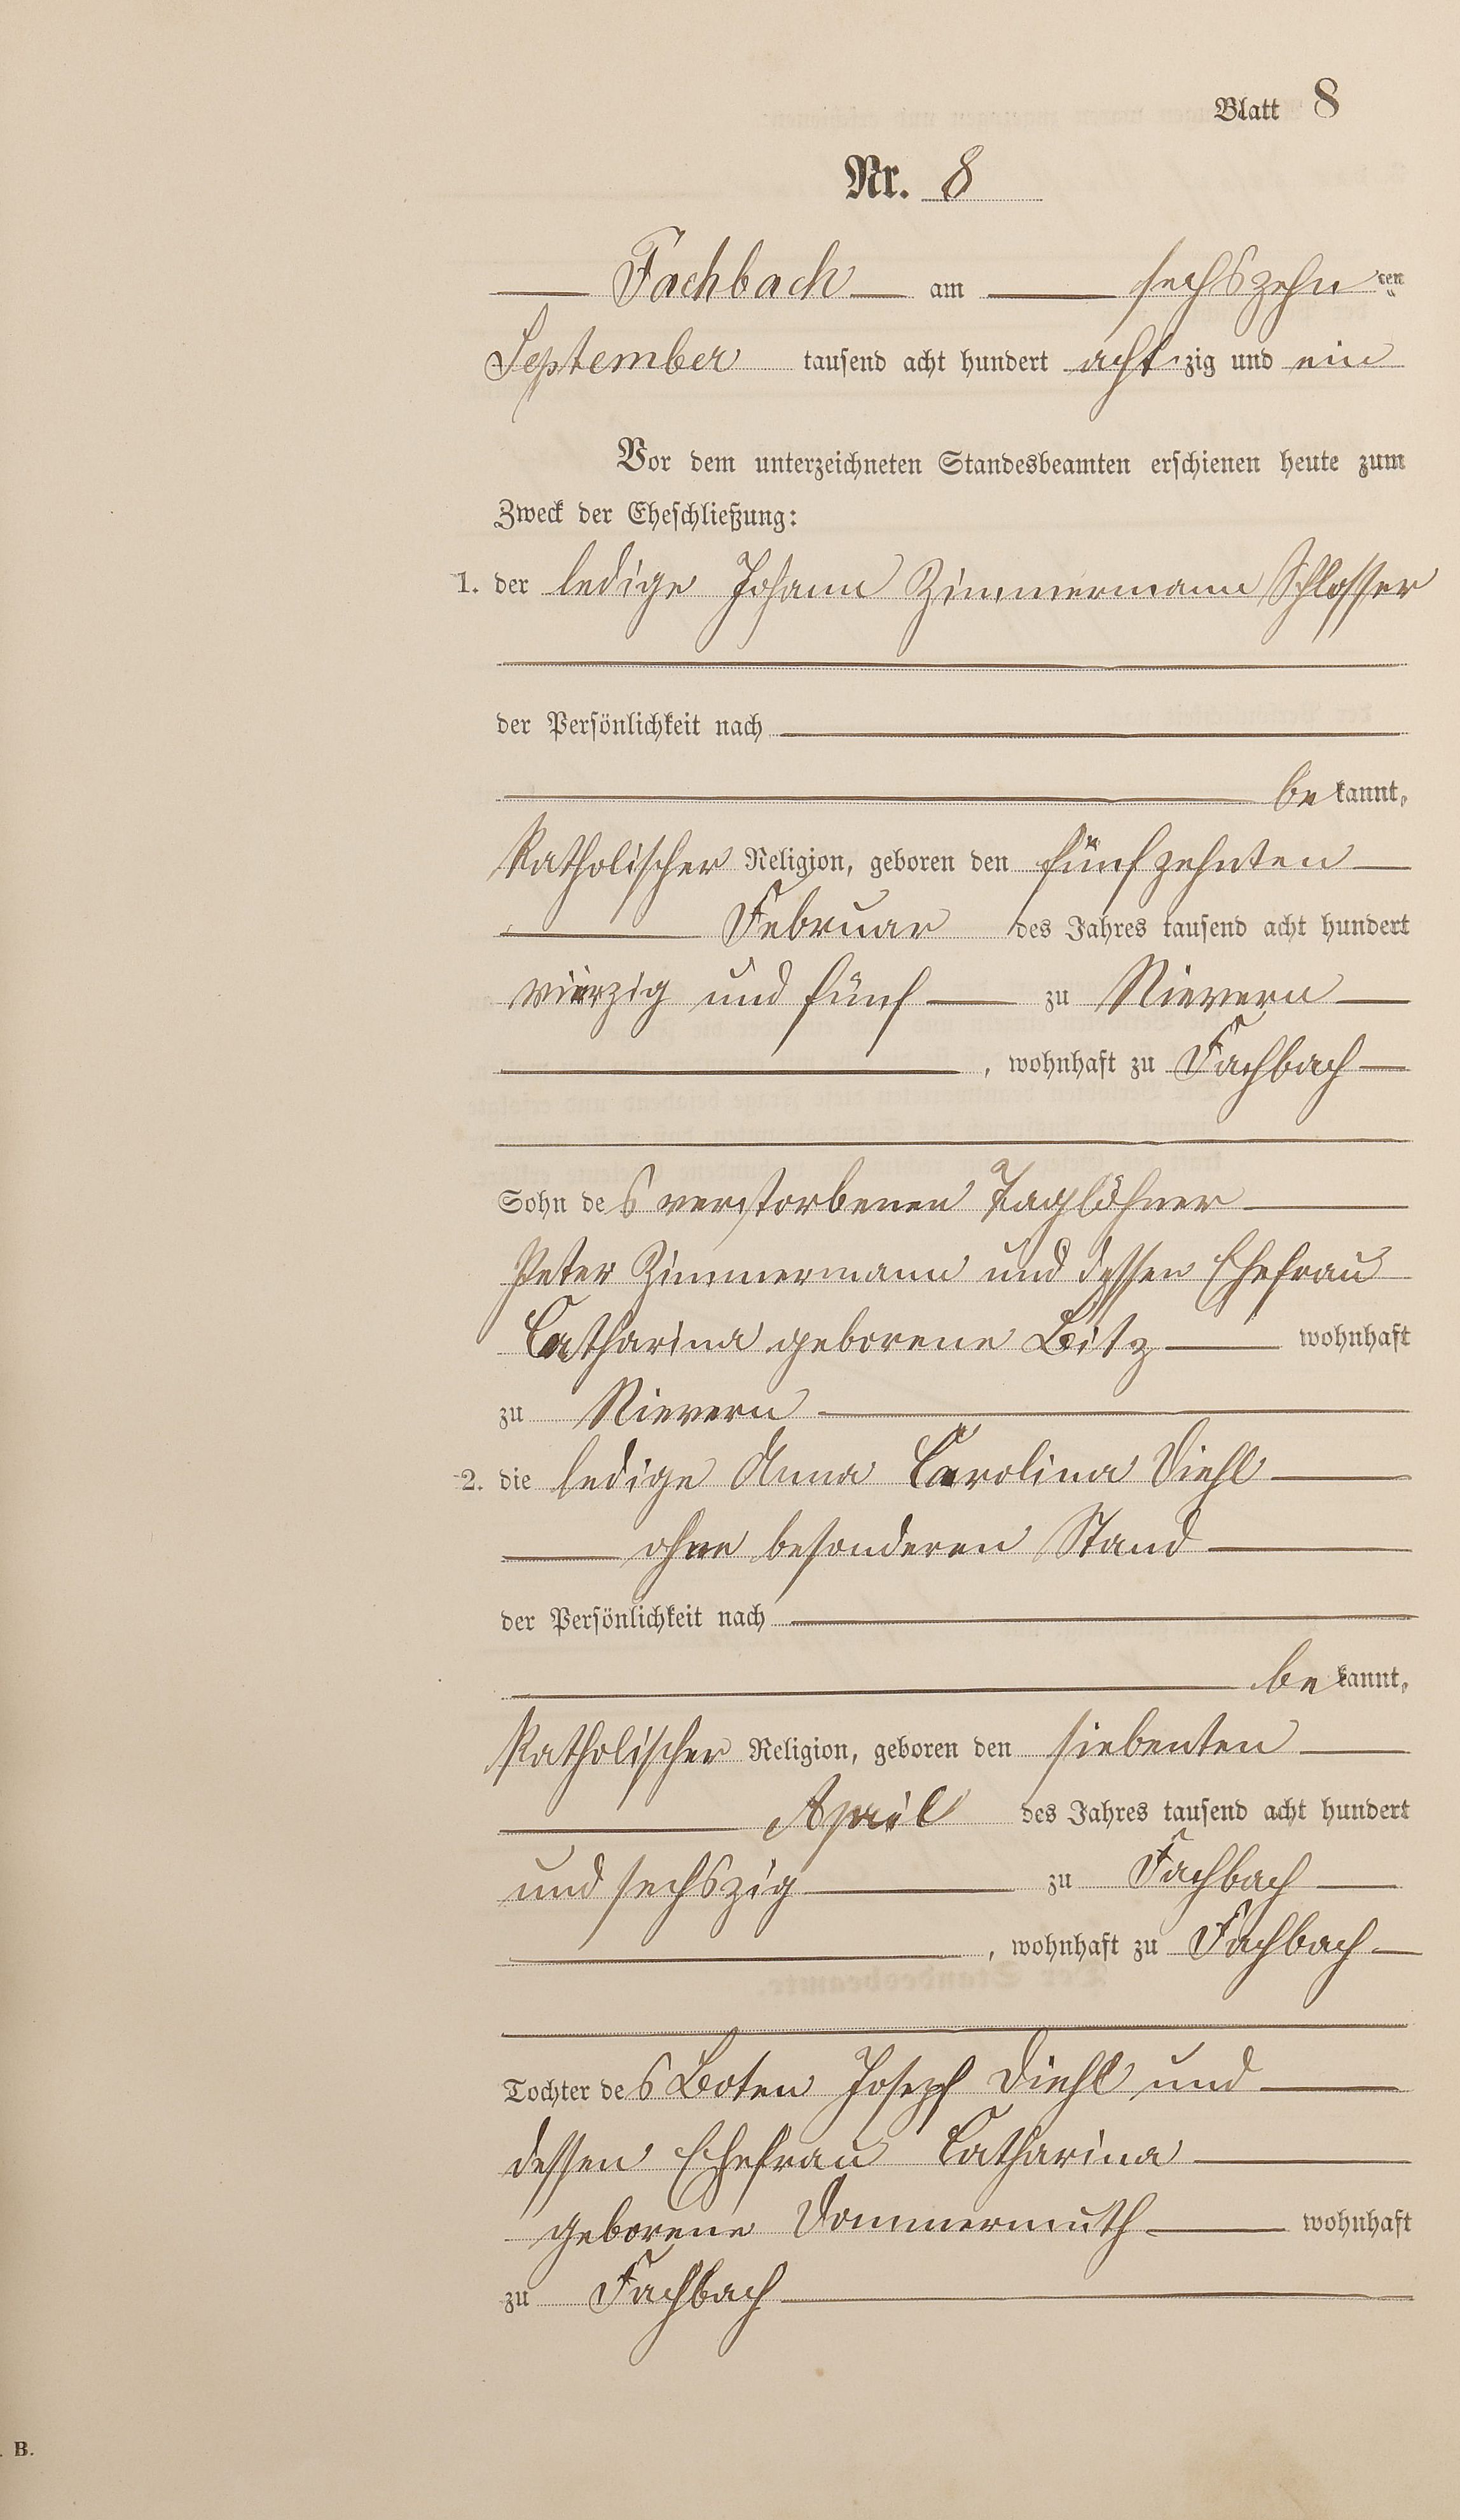 Blatt 8
Nr. 8
Fachbach am sechszehn ten
September tausend acht hundert achtzig und ein
Vor dem unterzeichneten Standesbeamten erschienen heute zum
Zweck der Eheschließung:
1. der ledige Johann Zimmermann Schlosser
der Persönlichkeit nach
be kannt,
Katholischer Religion, geboren den fünfzehnten
Februar des Jahres tausend acht hundert
vierzig und fünf zu Nievern
, wohnhaft zu Fachbach
Sohn des verstorbenen Taglöhner
Peter Zimmermann und dessen Ehefrau
Catharina geborene Bitz wohnhaft
zu Nievern
2. die ledige Anna Carolina Diehl
ohne besonderen Stand
der Persönlichkeit nach
be kannt,
Katholischer Religion, geboren den siebenten
April des Jahres tausend acht hundert
und sechszig zu Fachbach
, wohnhaft zu Fachbach
Tochter des Boten Joseph Diehl und
dessen Ehefrau Catharina
geborene Dommermuth wohnhaft
zu Fachbach
B.